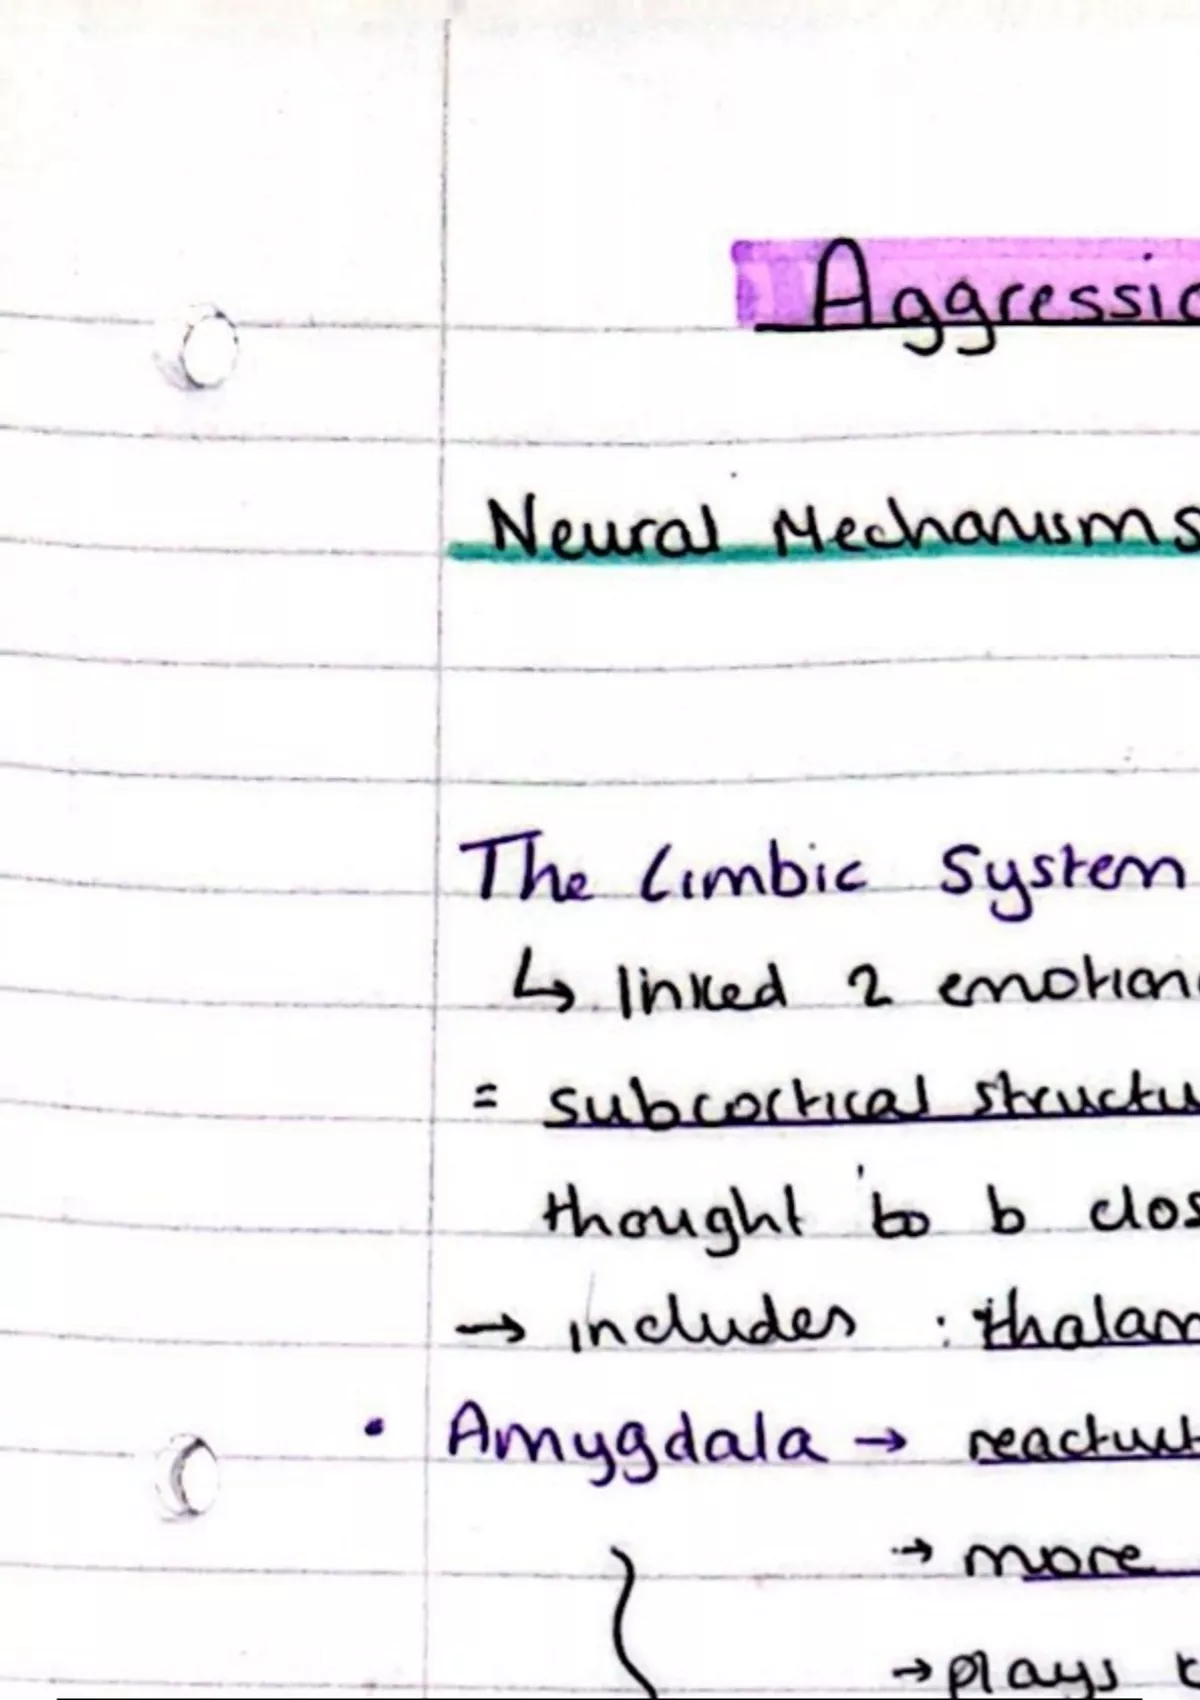 Aggressio
Neural Mechanisms
The Limbic System
↳ linked 2 emotion
= subcortical structu
thought to b clos
→ includes : thalam
• Amygdala → reactivit
→ more
→ plays